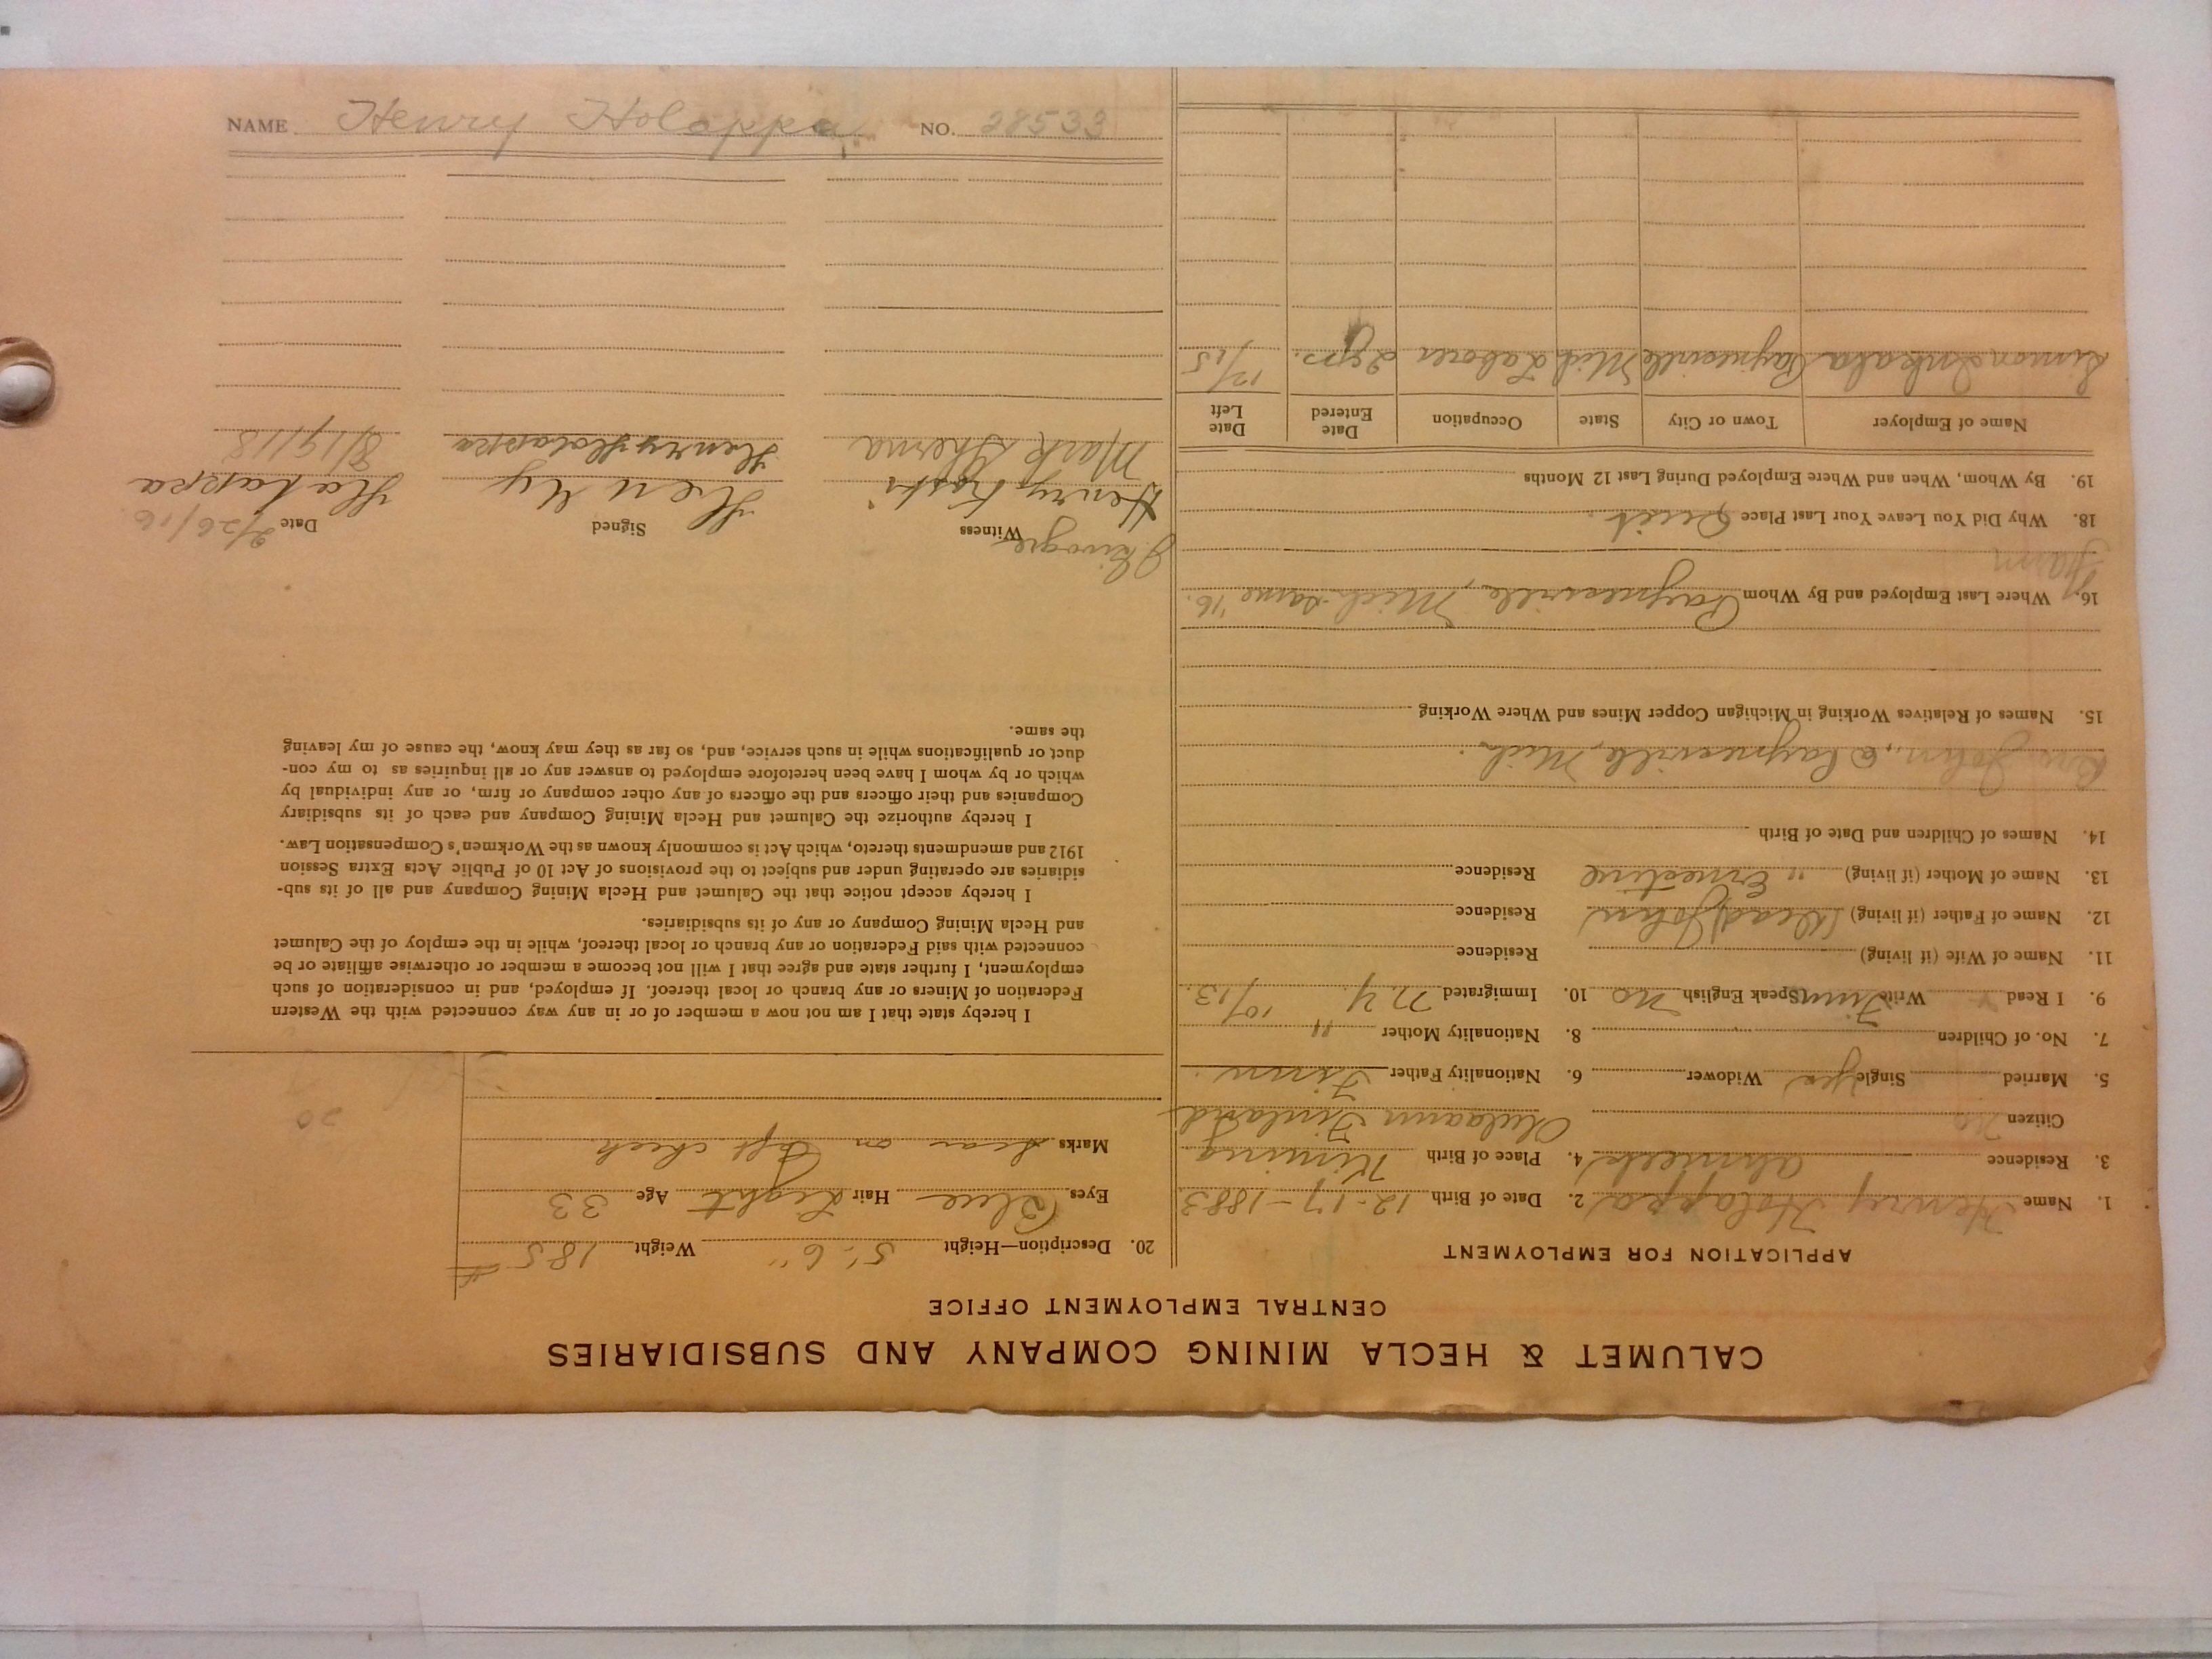 CALUMET & HECLA MINING COMPANY AND SUBSIDIARIES
CENTRAL EMPLOYMENT OFFICE
APPLICATION FOR EMPLOYMENT
1. Name Henry Holappa 2. Date of Birth 12-17-1883
3. Residence Ahmeek 4. Place of Birth Kiminga
Citizen No Oulaann Finland
5. Married Single Yes Widower 6. Nationality Father Finn.
7. No. of Children 8. Nationality Mother "
9. I Read Write Finn Speak English No 10. Immigrated N.Y. 10/13.
11. Name of Wife (if living) Residence
12. Name of Father (if living) (Dead) John Residence
13. Name of Mother (if living) " Ernestine Residence
14. Names of Children and Date of Birth
Bro. John, @ Paynesville, Mich.
15. Names of Relatives Working in Michigan Copper Mines and Where Working
16. Where Last Employed and By Whom Paynesville, Mich. same '16.
Farm
18. Why Did You Leave Your Last Place Quit.
19. By Whom, When and Where Employed During Last 12 Months
Name of Employer Town or City State Occupation Date Entered Date Left
Simon Inkala Paynesville Mich Laborer 2 yrs. 12/15
20. Description—Height 5' 6" Weight 185#
Eyes Blue Hair Light Age 33
Marks Scar on left cheek
20
I hereby state that I am not now a member of or in any way connected with the Western
Federation of Miners or any branch or local thereof. If employed, and in consideration of such
employment, I further state and agree that I will not become a member or otherwise affiliate or be
connected with said Federation or any branch or local thereof, while in the employ of the Calumet
and Hecla Mining Company or any of its subsidiaries.
I hereby accept notice that the Calumet and Hecla Mining Company and all of its sub-
sidiaries are operating under and subject to the provisions of Act 10 of Public Acts Extra Session
1912 and amendments thereto, which Act is commonly known as the Workmen's Compensation Law.
I hereby authorize the Calumet and Hecla Mining Company and each of its subsidiary
Companies and their officers and the officers of any other company or firm, or any individual by
which or by whom I have been heretofore employed to answer any or all inquiries as to my con-
duct or qualifications while in such service, and, so far as they may know, the cause of my leaving
the same.
Witness Signed Date 2/26/16.
Henry Koski Henry Holappa
Mark Sherna Henry Holappa 8/19/18
NAME Henry Holappa NO. 28533